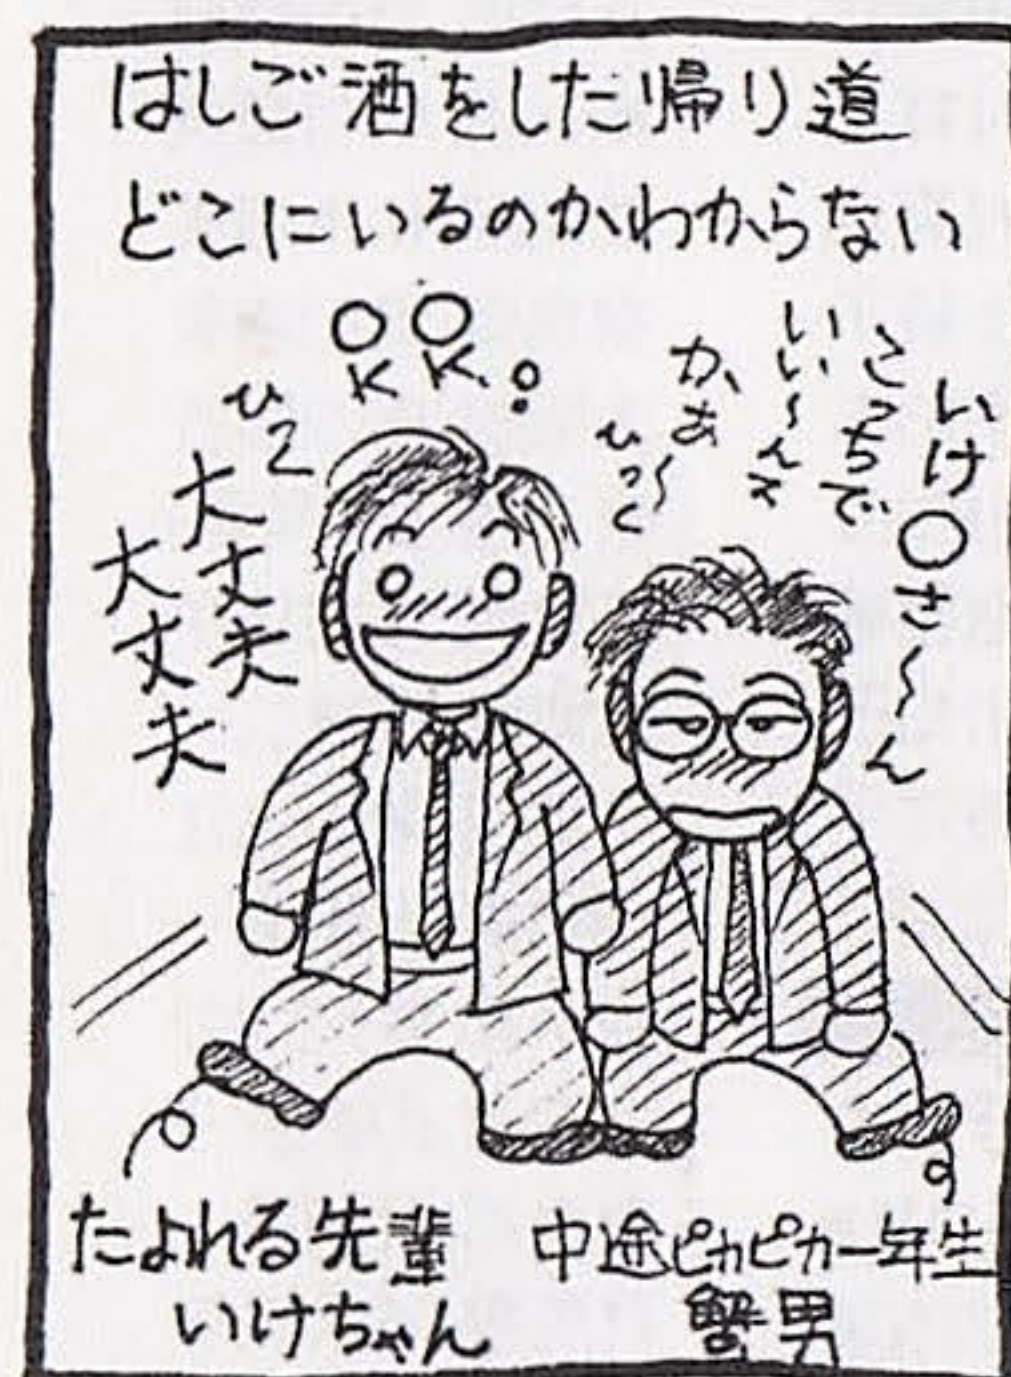 はしご酒をした帰り道
どこにいるのかわからない
いけ〇さ〜ん
こっちで
いい〜んス
かぁ〜
ひっく
OK OK!
ひっく
大丈夫
大丈夫
たよれる先輩
いけちゃん
中途ピカピカ一年生
蟹男